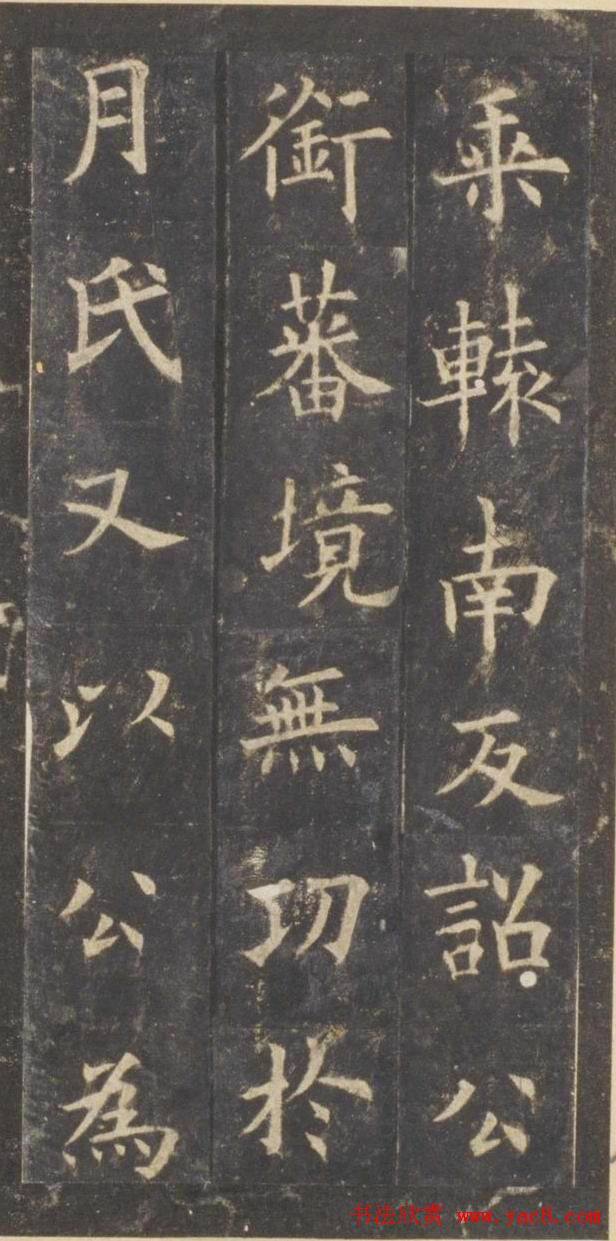 乘轅南反詔公
銜蕃境無功於
月氏又以公為
书法欣赏 www.yac8.com